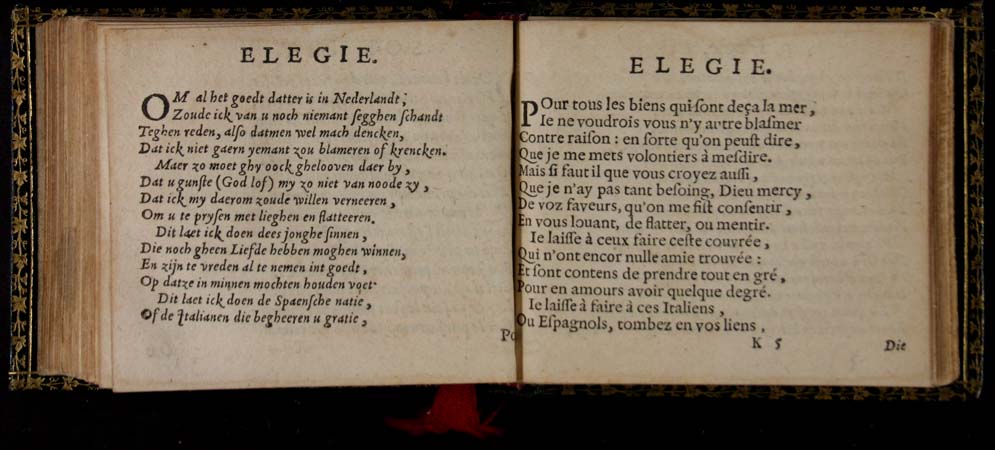 ELEGIE.
OM al het goedt datter is in Nederlandt,
Zoude ick van u noch niemant ſegghen ſchandt
Teghen reden, alſo datmen wel mach dencken,
Dat ick niet gaern yemant zou blameren of krencken.
Maer zo moet ghy oock ghelooven daer by,
Dat u gunſte (God lof) my zo niet van noode zy,
Dat ick my daerom zoude willen verneeren,
Om u te pryſen met lieghen en flatteeren.
Dit laet ick doen dees jonghe ſinnen,
Die noch gheen Liefde hebben moghen winnen,
En zijn te vreden al te nemen int goedt,
Op datze in minnen mochten houden voet
Dit laet ick doen de Spaenſche natie,
Of de Italianen die begheeren u gratie,
Po
ELEGIE.
POur tous les biens qui ſont deça la mer,
Ie ne voudrois vous n'y autre blaſmer
Contre raiſon : en ſorte qu'on peuſt dire,
Que je me mets volontiers à meſdire.
Mais ſi faut il que vous croyez auſſi,
Que je n'ay pas tant beſoing, Dieu mercy,
De voz faveurs, qu'on me fiſt conſentir,
En vous louant, de flatter, ou mentir.
Ie laiſſe à ceux faire ceſte couvrée,
Qui n'ont encor nulle amie trouvée :
Et ſont contens de prendre tout en gré,
Pour en amours avoir quelque degré.
Ie laiſſe à faire à ces Italiens,
Ou Eſpagnols, tombez en vos liens,
K 5
Die